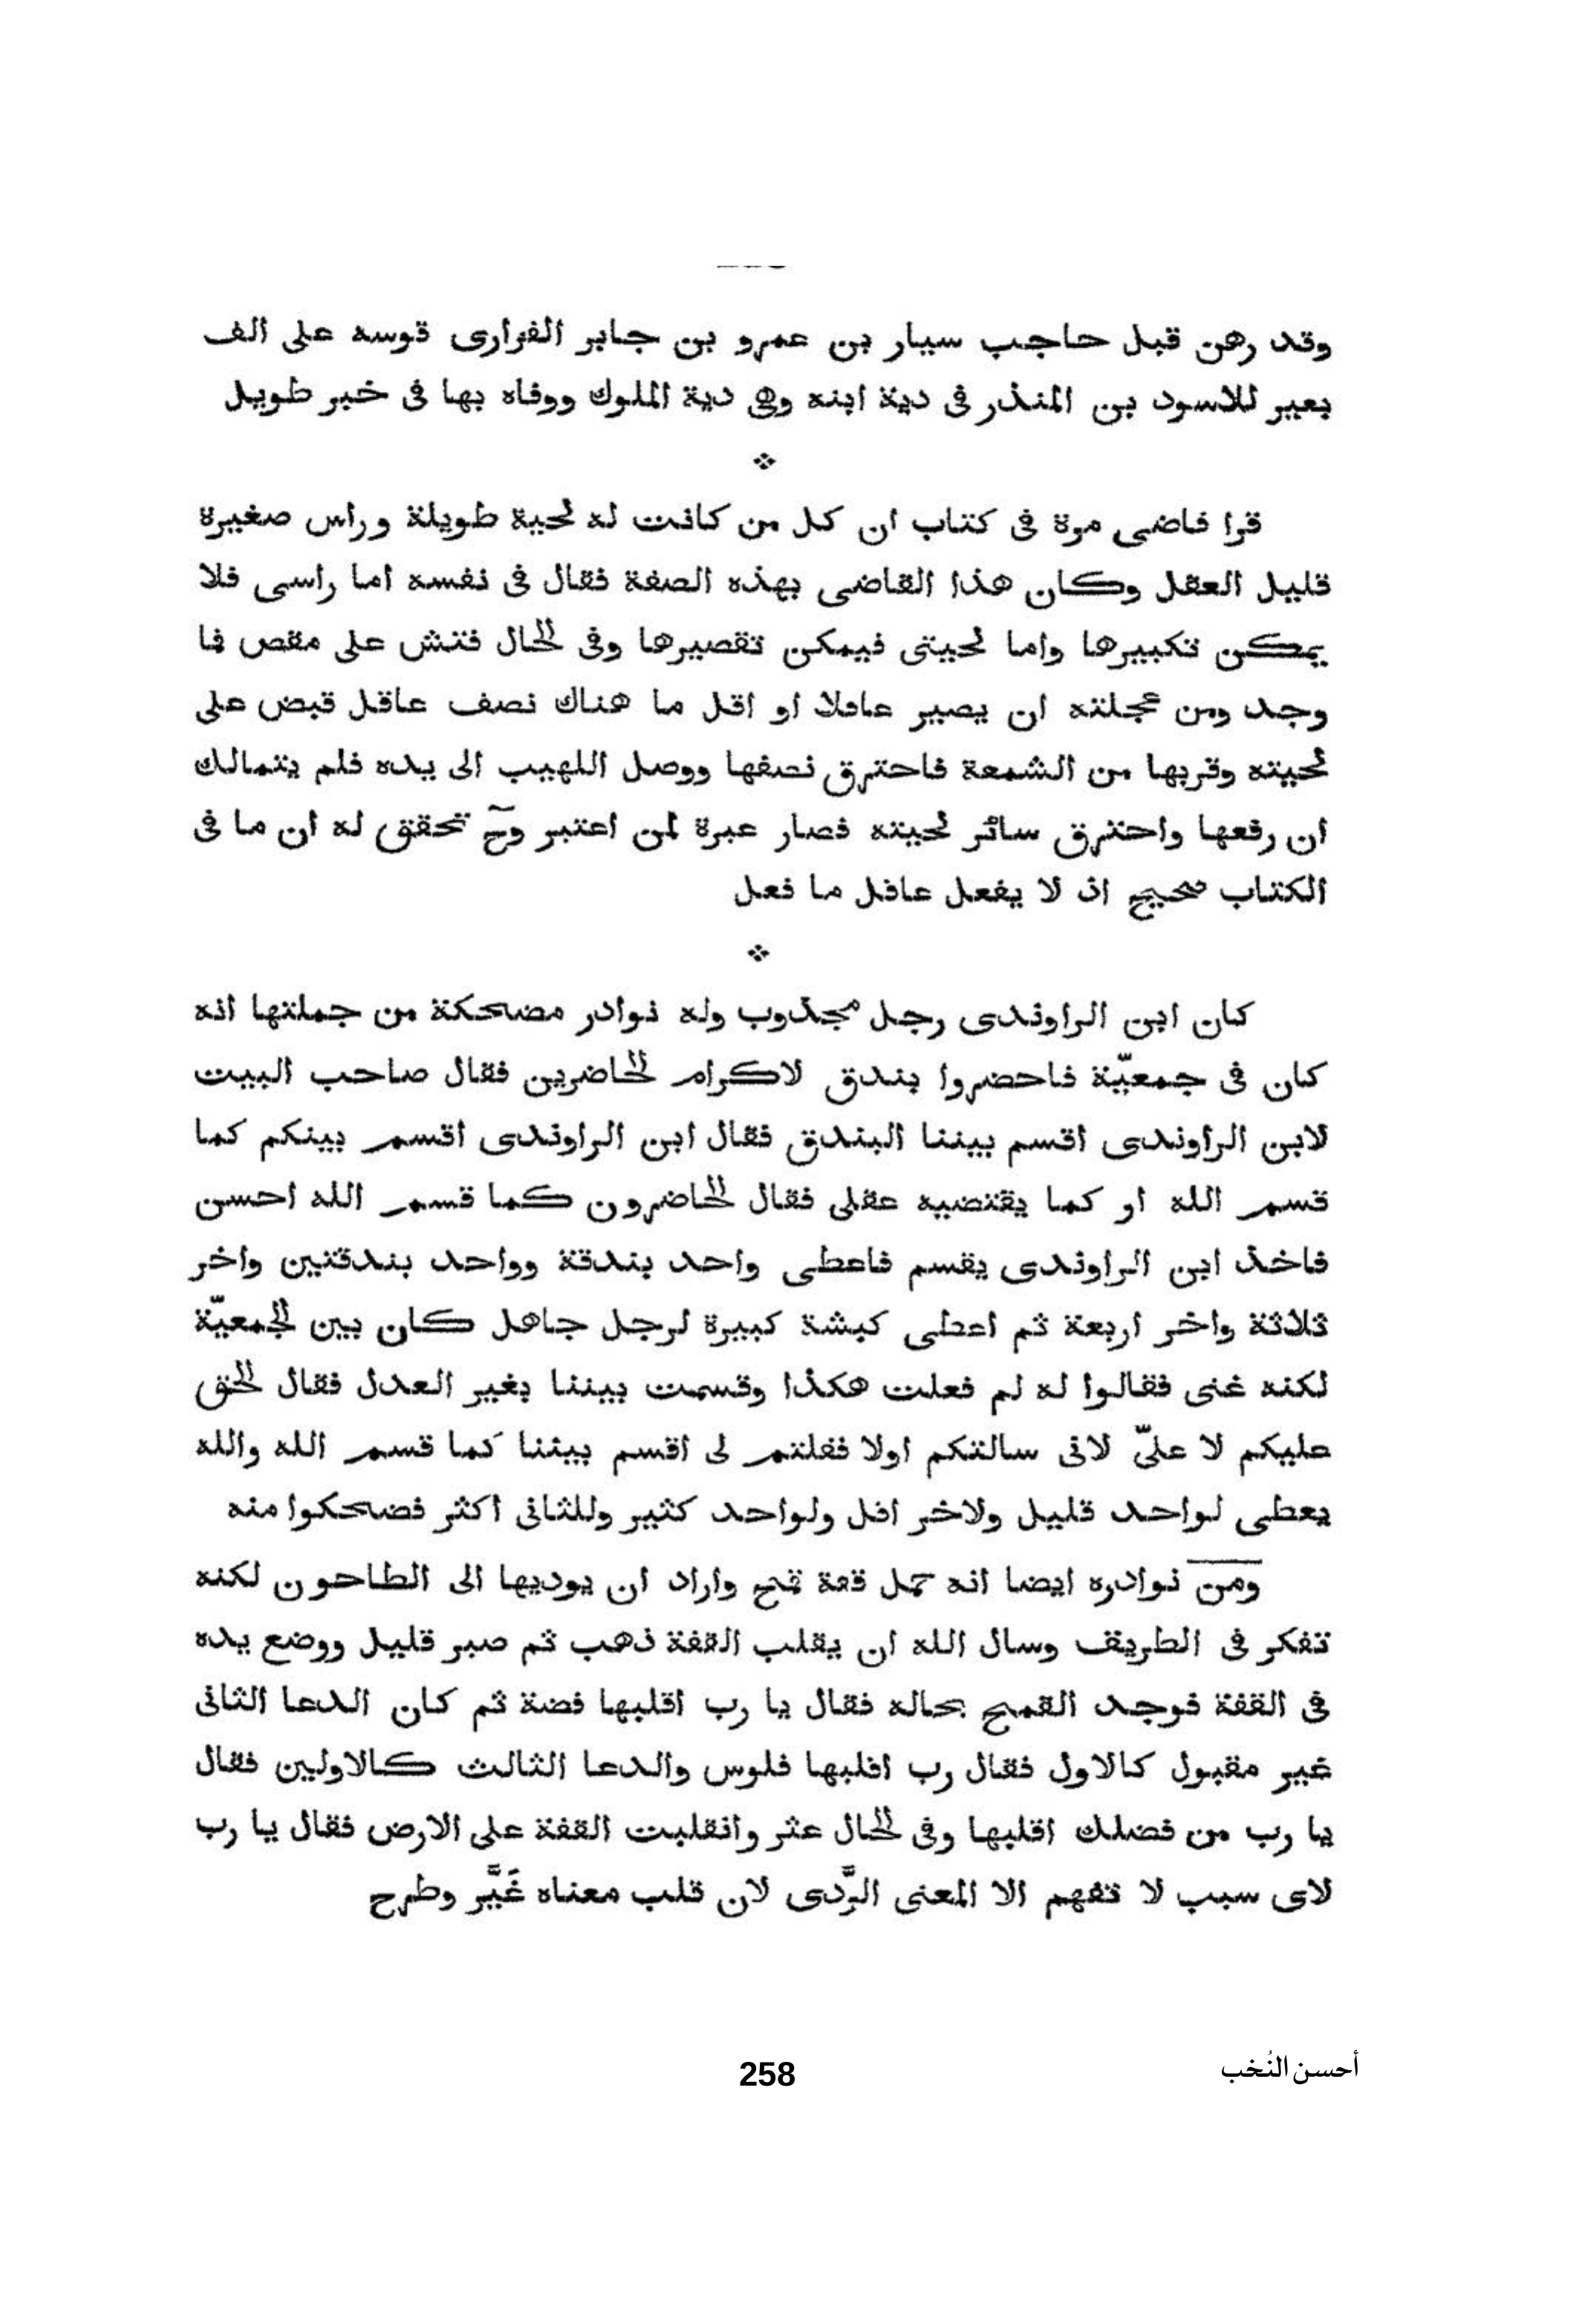 وقد رهن قبل حاجب سيار بن عمرو بن جابر الفزارى قوسه على الف
بعير للاسود بن المنذر فى دية ابنه وهى دية الملوك ووفاه بها فى خبر طويل
قرا قاضى مرة فى كتاب ان كل من كانت له لحية طويلة وراس صغيرة
قليل العقل وكان هذا القاضى بهذه الصفة فقال فى نفسه اما راسى فلا
يمكن تكبيرها واما لحيتى فيمكن تقصيرها وفى الحال فتش على مقص فما
وجد ومن عجلته ان يصير عاقلا او اقل ما هناك نصف عاقل قبض على
لحيته وقربها من الشمعة فاحترق نصفها ووصل اللهيب الى يده فلم يتمالك
ان رفعها واحترق سائر لحيته فصار عبرة لمن اعتبر وحٓ تحقق له ان ما فى
الكتاب صحيح اذ لا يفعل عاقل ما فعل
كان ابن الراوندى رجل مجذوب وله نوادر مضحكة من جملتها انه
كان فى جمعيّة فاحضروا بندق لاكرام الحاضرين فقال صاحب البيت
لابن الراوندى اقسم بيننا البندق فقال ابن الراوندى اقسم بينكم كما
قسم الله او كما يقتضيه عقلى فقال الحاضرون كما قسم الله احسن
فاخذ ابن الراوندى يقسم فاعطى واحد بندقة وواحد بندقتين واخر
ثلاثة واخر اربعة ثم اعطى كبشة كبيرة لرجل جاهل كان بين الجمعيّة
لكنه غنى فقالوا له لم فعلت هكذا وقسمت بيننا بغير العدل فقال الحق
عليكم لا علىّ لانى سالتكم اولا فقلتم لى اقسم بيننا كما قسم الله والله
يعطى لواحد قليل ولاخر اقل ولواحد كثير وللثانى اكثر فضحكوا منه
ومن نوادره ايضا انه حمل قفة قمح واراد ان يوديها الى الطاحون لكنه
تفكر فى الطريق وسال الله ان يقلب القفة ذهب ثم صبر قليل ووضع يده
فى القفة فوجد القمح بحاله فقال يا رب اقلبها فضة ثم كان الدعا الثانى
غير مقبول كالاول فقال رب اقلبها فلوس والدعا الثالث كالاولين فقال
يا رب من فضلك اقلبها وفى الحال عثر وانقلبت القفة على الارض فقال يا رب
لاى سبب لا تفهم الا المعنى الرَّدى لان قلب معناه غَيَّر وطرح
أحسن النُخب
258